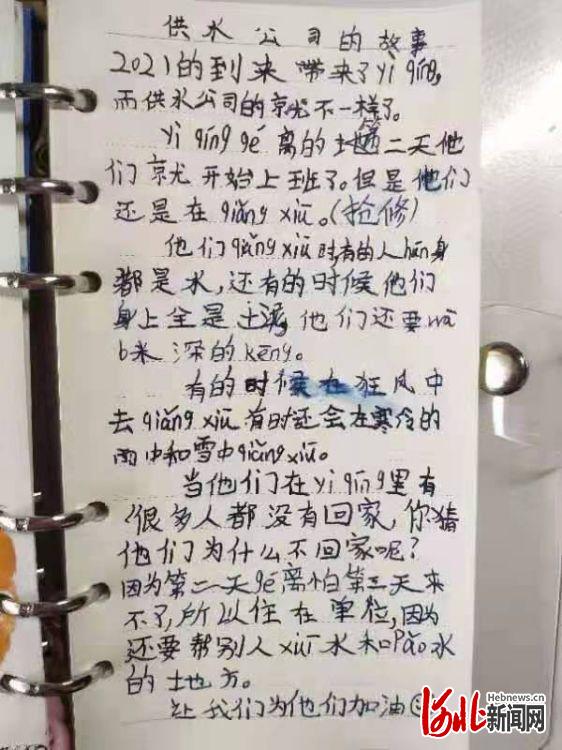 供水公司的故事
2021的到来带来了yì qíng,
而供水公司的京尤不一样了。
yì qíng gé离的第二天他
们京尤开始上班了。但是他们
还是在qiǎng xiū。(抢修)
他们qiǎng xiū时,有的人hún身
都是水,还有的时候他们
身上全是土泥,他们还要wā
6米深的kēng。
有的时候在狂风中
去qiǎng xiū有时还会在寒冷的
雨中和雪中qiǎng xiū。
当他们在yì qíng里有
很多人都没有回家,你猜
他们为什么不回家呢?
因为第二天gé离怕第三天来
不了,所以住在单位,因为
还要帮别人xiū水和pǎo水
的土也方。
让我们为他们加油
Hebnews.cn
河北新闻网